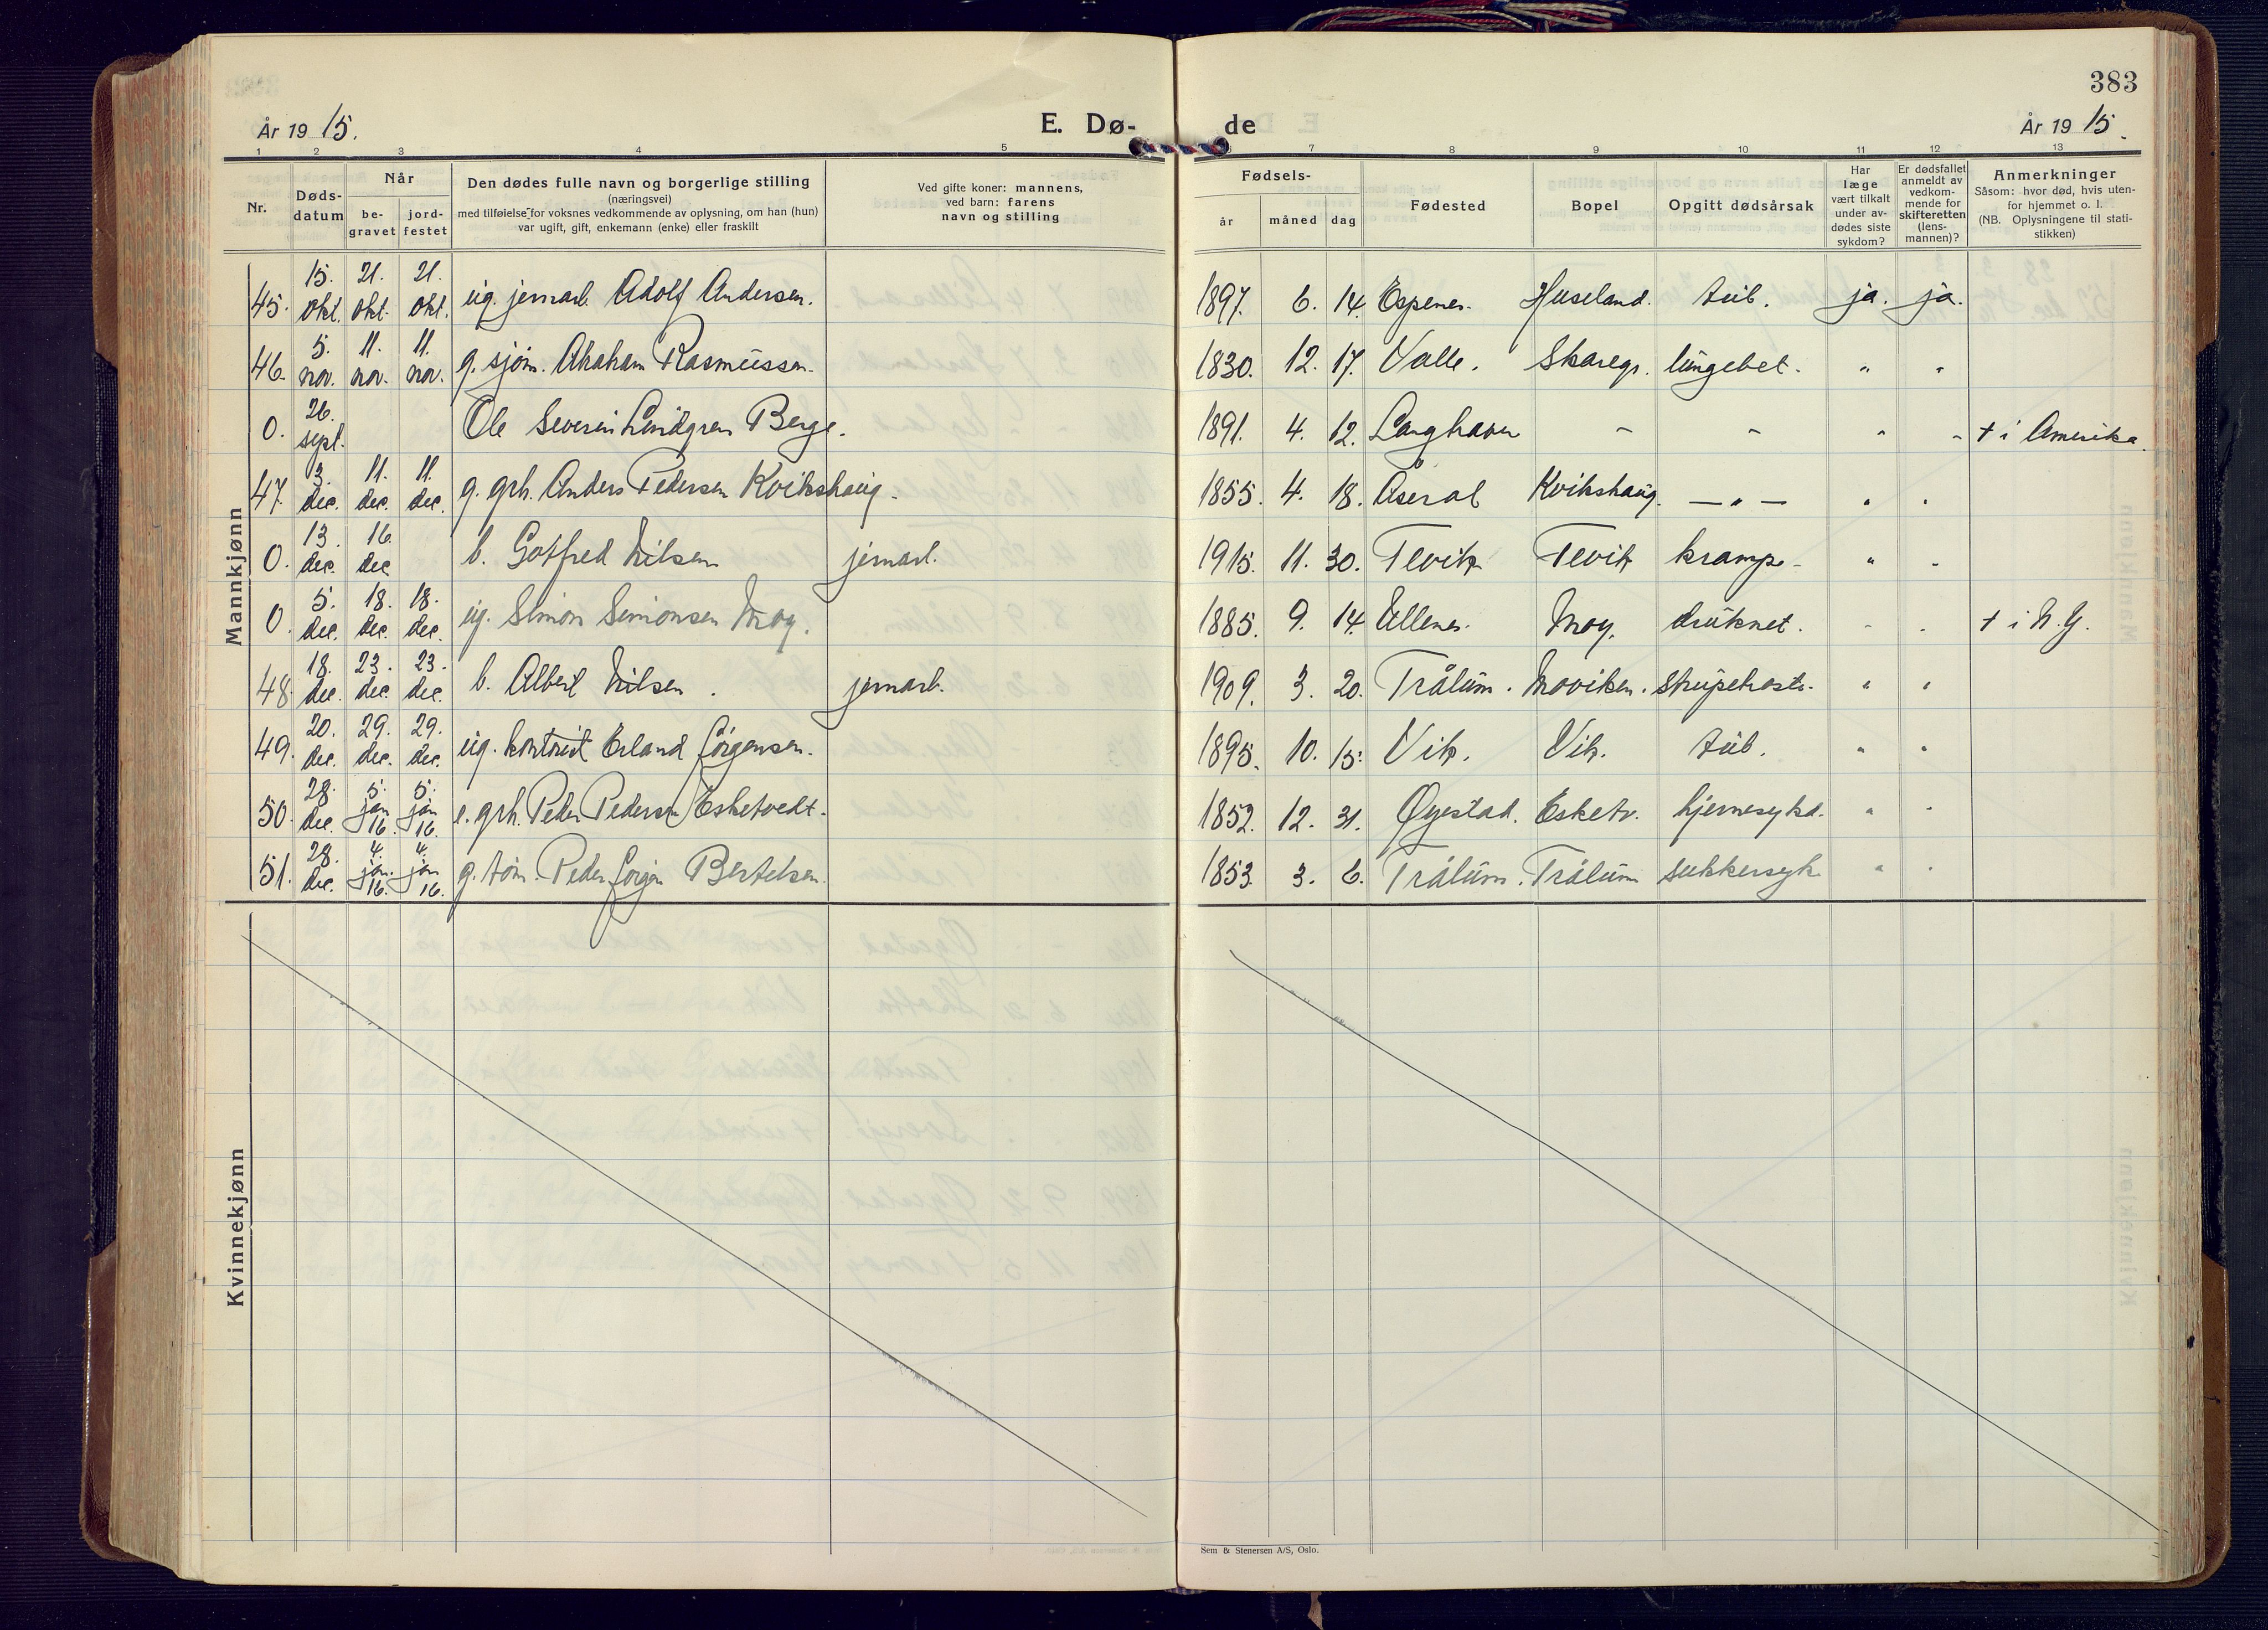 383
År 1915.
E. Dø-
de
År 1915.
1 2 3 4 5 6 7 8 9 10 11 12 13
Nr.
Døds-
datum
Når
be-
gravet
jord-
festet
Den dødes fulle navn og borgerlige stilling
(næringsvei)
med tilføielse for voksnes vedkommende av oplysning, om han (hun)
var ugift, gift, enkemann (enke) eller fraskilt
Ved gifte koner: mannens,
ved barn: farens
navn og stilling
Fødsels-
år
måned
dag
Fødested
Bopel
Opgitt dødsårsak
Har
læge
vært tilkalt
under av-
dødes siste
sykdom?
Er dødsfallet
anmeldt av
vedkom-
mende for
skifteretten
(lens-
mannen)?
Anmerkninger
Såsom: hvor død, hvis uten-
for hjemmet o. l.
(NB. Oplysningene til stati-
stikken)
Mannkjønn
45. 15. okt. 21. okt. 21. okt. ug. jernarb. Adolf Andersen. 1897. 6. 14. Espenes. Huseland. tub. ja. ja.
46. 5. nov. 11. nov. 11. nov. g. sjøm. Abraham Rasmussen. 1830. 12. 17. Valle. Skaregr. lungebet. " "
0. 26. sept. Ole Severin Lindgren Berge. 1891. 4. 12. Langhaven - - - - + i Amerika.
47. 3. dec. 11. dec. 11. dec. g. grb. Anders Pedersen Kvikshaug. 1855. 4. 18. Åseral Kvikshaug. — " — " "
0. 13. dec. 16. dec. b. Gotfred Nilsen jernarb. 1915. 11. 30. Tevik Tevik krampe - " -
0. 5. dec. 18. dec. 18. dec. ug. Simon Simonsen Moy. 1885. 9. 14. Ullenes. Moy. druknet. - - + i N. Y.
48. 18. dec. 23. dec. 23. dec. b. Albert Nilsen. jernarb. 1909. 3. 20. Trålum. Moviken. strupehoste. " "
49. 20. dec. 29. dec. 29. dec. ug. kontorist Erland Jørgensen. 1895. 10. 15. Vik. Vik. tub. " "
50. 28. dec. 5. jan. 16. 5. jan. 16. e. grb. Peder Pedersen Esketvedt. 1852. 12. 31. Øyestad. Esketv. hjernesykd. " "
51. 28. dec. 4. jan. 16. 4. jan. 16. g. tøm. Peder Jørgen Bertelsen. 1853. 3. 6. Trålum. Trålum sukkersyk. " "
Kvinnekjønn
Sem & Stenersen A/S, Oslo.